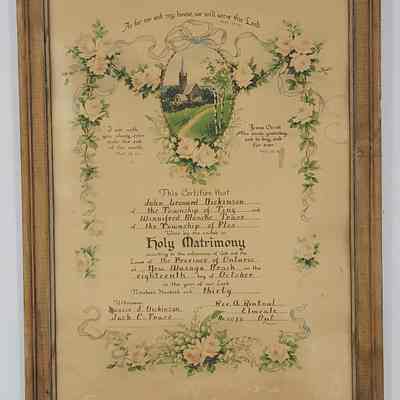 As for me and my house, we will serve the Lord
I am with
you alway, even
unto the end
of the world.
Jesus Christ
the same yesterday,
and to-day, and
for ever.
This Certifies that
John Leonard Dickinson
of the Township of Tiny and
Winnifred Blanche Trace
of the Township of Flos
Were by me united in
Holy Matrimony
according to the ordinance of God and the
Laws of the Province of Ontario
at New Wasaga Beach on the
eighteenth day of October
in the year of our Lord
Nineteen Hundred and thirty
Witnesses
Bessie I. Dickinson
Jack C. Trace
Rev. A. Rintoul
Elmvale
Ont.